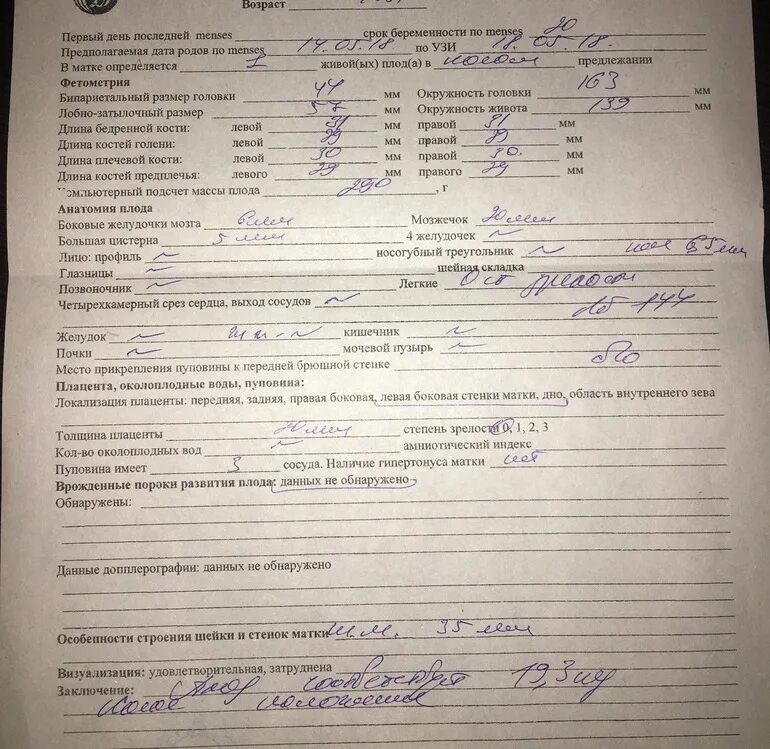 Возраст
Первый день последней menses срок беременности по menses 20
Предполагаемая дата родов по menses 14.05.18 по УЗИ 18.05.18.
В матке определяется 1 живой(ых) плод(а) в косом предлежании
Фетометрия
Бипариетальный размер головки 44 мм Окружность головки 163 мм
Лобно-затылочный размер 57 мм Окружность живота 139 мм
Длина бедренной кости: левой 31 мм правой 31 мм
Длина костей голени: левой 29 мм правой 29 мм
Длина плечевой кости: левой 30 мм правой 30. мм
Длина костей предплечья: левого 29 мм правого 29 мм
Компьютерный подсчет массы плода 290, г
Анатомия плода
Боковые желудочки мозга 6 мм Мозжечок 20 мм
Большая цистерна 5 мм 4 желудочек ~
Лицо: профиль ~ носогубный треугольник ~ мм
Глазницы ~ шейная складка
Позвоночник ~ Легкие
Четырехкамерный срез сердца, выход сосудов ~ 144
Желудок ~ кишечник ~
Почки ~ мочевой пузырь ~
Место прикрепления пуповины к передней брюшной стенке
Плацента, околоплодные воды, пуповина:
Локализация плаценты: передняя, задняя, правая боковая, левая боковая стенки матки, дно, область внутреннего зева
Толщина плаценты 20 мм степень зрелости 0, 1, 2, 3
Кол-во околоплодных вод ~ амниотический индекс
Пуповина имеет 3 сосуда. Наличие гипертонуса матки нет
Врожденные пороки развития плода: данных не обнаружено
Обнаружены:
Данные допплерографии: данных не обнаружено
Особенности строения шейки и стенок матки Ш.М. 35 мм
Визуализация: удовлетворительная, затруднена
Заключение: Плод соответствует 19,3 нед
косое положение